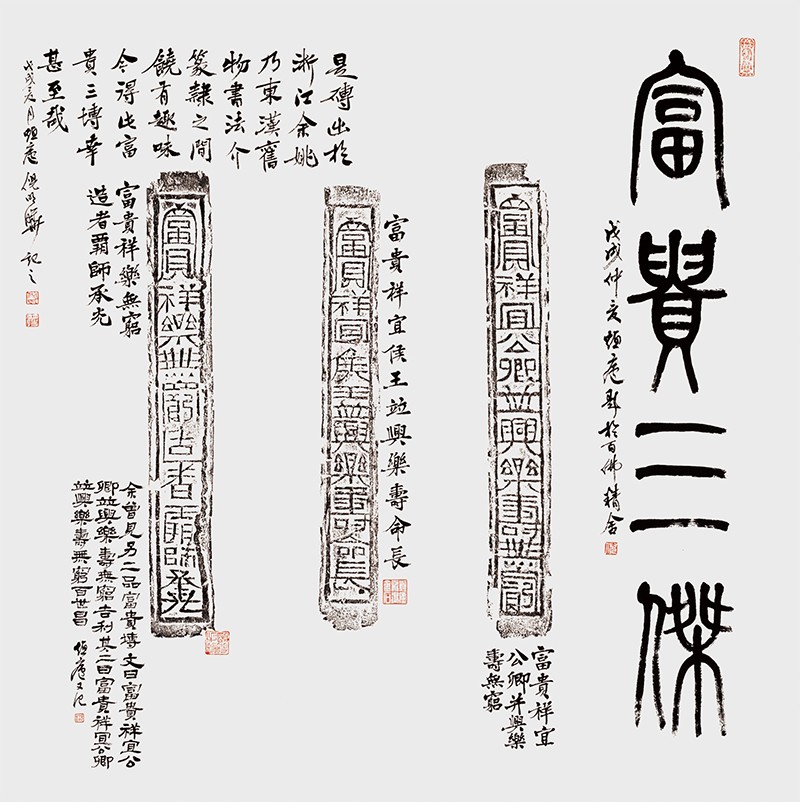 富貴三傑
戊戌仲亥恒庵題於百佛精舍
富貴祥宜公卿並興樂壽無窮
富貴祥宜
公卿并興樂
壽無窮
富貴祥宜侯王竝興樂壽命長
富貴祥宜侯王並興樂壽命長
富貴祥樂無窮造者霸師承光
富貴祥樂無窮
造者霸師承光
是磚出於
浙江余姚
乃東漢舊
物書法介
篆隸之間
饒有趣味
今得此富
貴三塼幸
甚至哉
戊戌亥月恒庵
記之
余曾見另二品富貴塼文曰富貴祥宜公
卿竝興樂壽無窮吉利其二曰富貴祥宜公卿
竝興樂壽無窮百世昌
恒庵又記